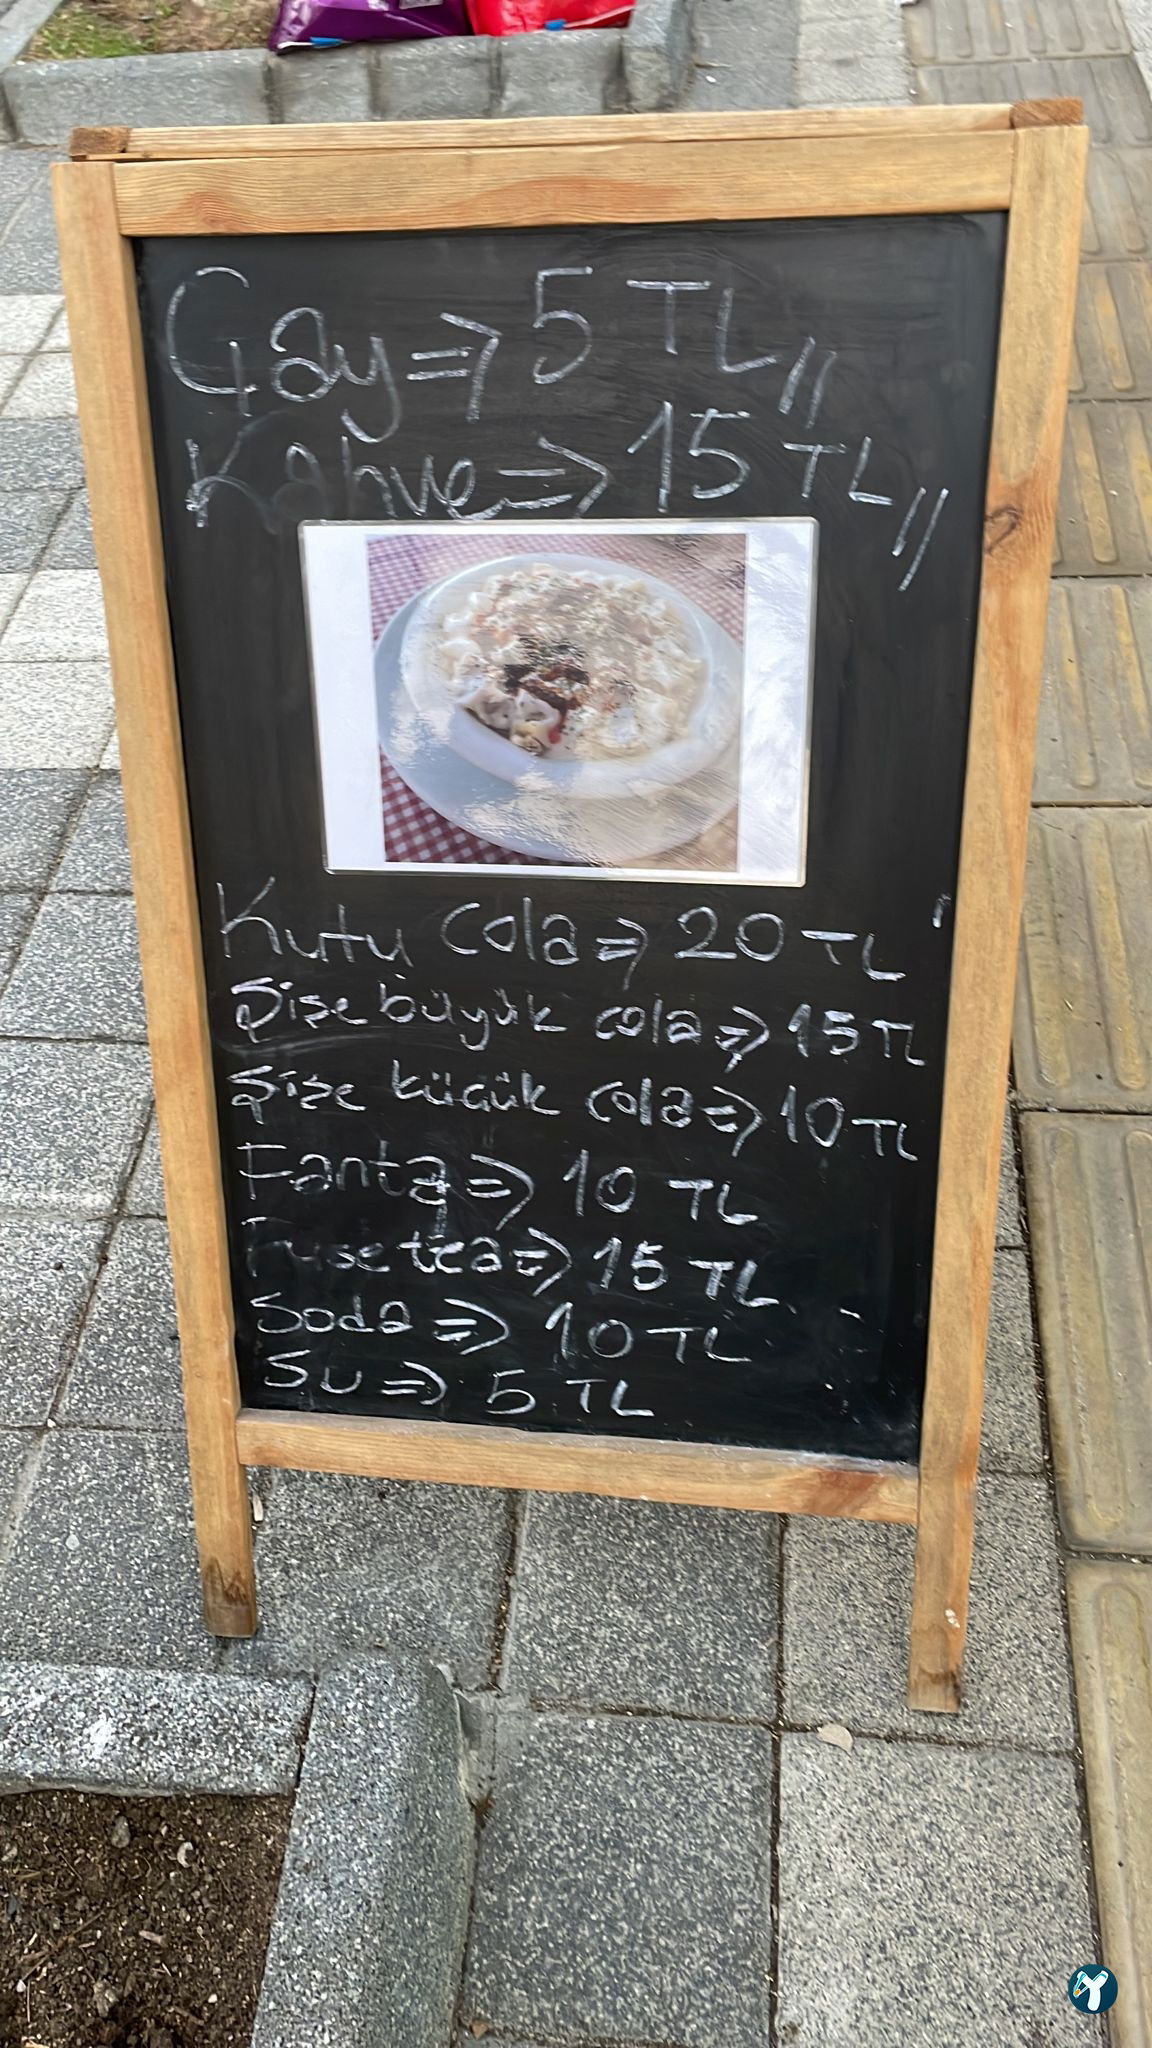 Çay => 5 TL //
Kahve => 15 TL //
Kutu Cola => 20 TL
Şişe büyük cola => 15 TL
Şişe küçük cola => 10 TL
Fanta => 10 TL
Fuse tea => 15 TL
Soda => 10 TL
Su => 5 TL